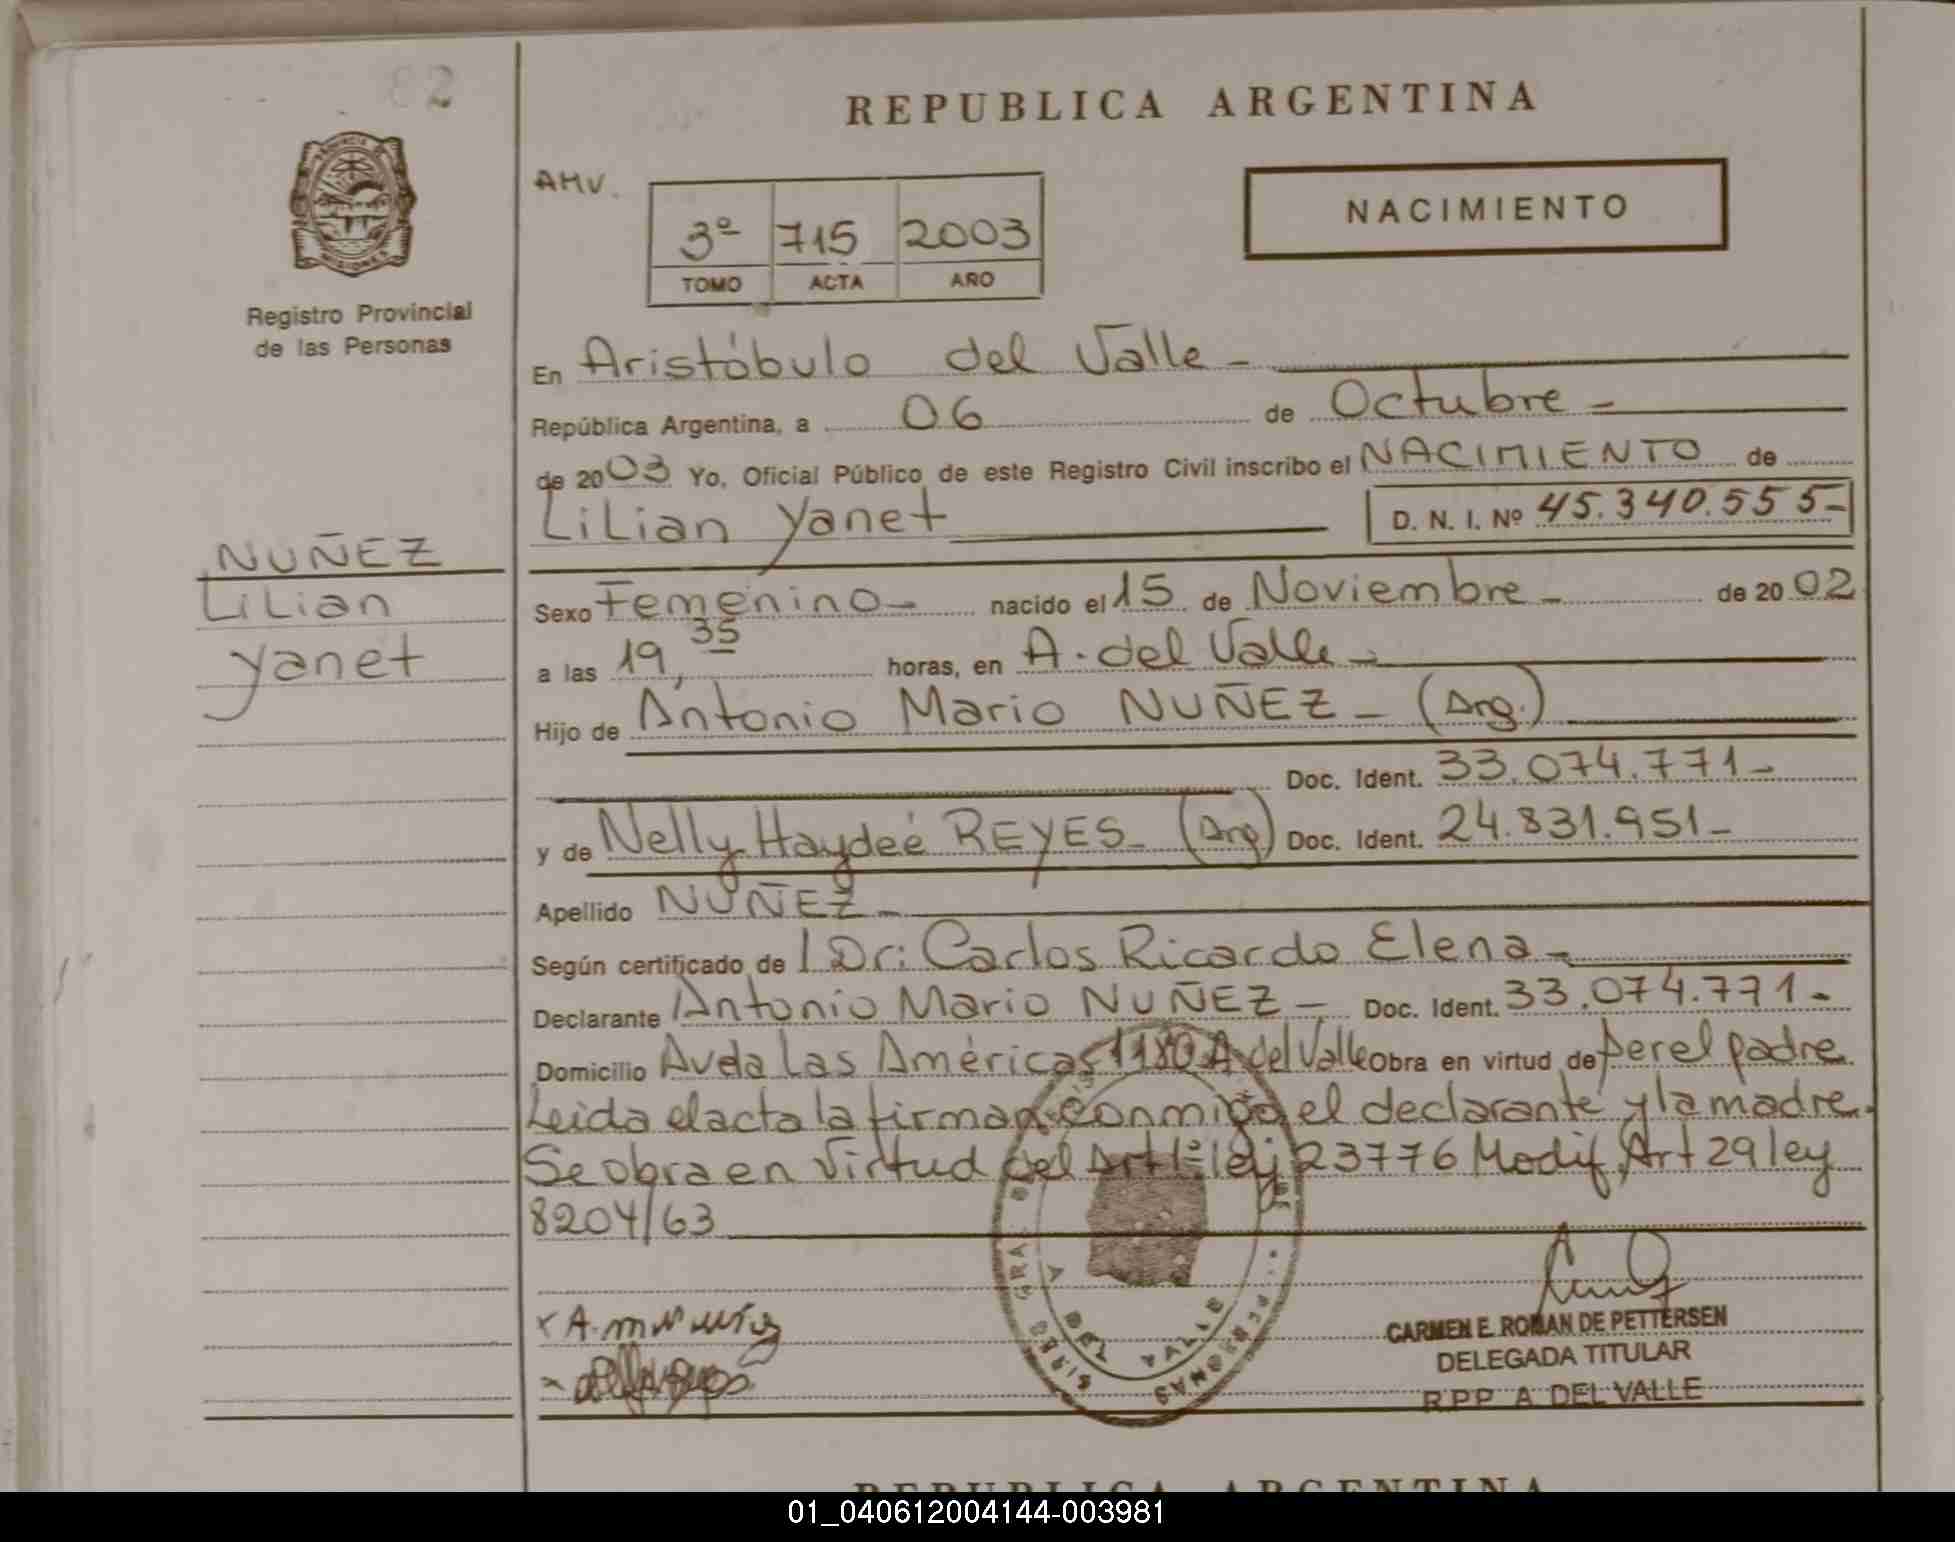 82
REPUBLICA ARGENTINA
PROVINCIA DE
MISIONES
AMV.
3º 715 2003
TOMO ACTA AÑO
NACIMIENTO
Registro Provincial
de las Personas
En Aristóbulo del Valle -
República Argentina, a 06 de Octubre -
de 2003 Yo, Oficial Público de este Registro Civil inscribo el NACIMIENTO de
Lilian Yanet D. N. I. Nº 45.340.555-
NUÑEZ
Lilian
Yanet
Sexo Femenino- nacido el 15 de Noviembre - de 2002
a las 19,35 horas, en A. del Valle -
Hijo de Antonio Mario NUÑEZ - (Arg.)
Doc. Ident. 33.074.771-
y de Nelly Haydeé REYES - (Arg.) Doc. Ident. 24.831.951-
Apellido NUÑEZ -
Según certificado de l Dr: Carlos Ricardo Elena -
Declarante Antonio Mario NUÑEZ - Doc. Ident. 33.074.771-
Domicilio Avda Las Américas 1180 A del Valle Obra en virtud de ser el padre.
Leida el acta la firman conmigo el declarante y la madre.
Se obra en virtud del Art 1º ley 23776 Modif. Art 29 ley
8204/63
x A. m Nuñez
CARMEN E. ROMAN DE PETTERSEN
DELEGADA TITULAR
R.P.P. A. DEL VALLE
A. DEL VALLE
PERSONAS
REPUBLICA ARGENTINA
01_040612004144-003981